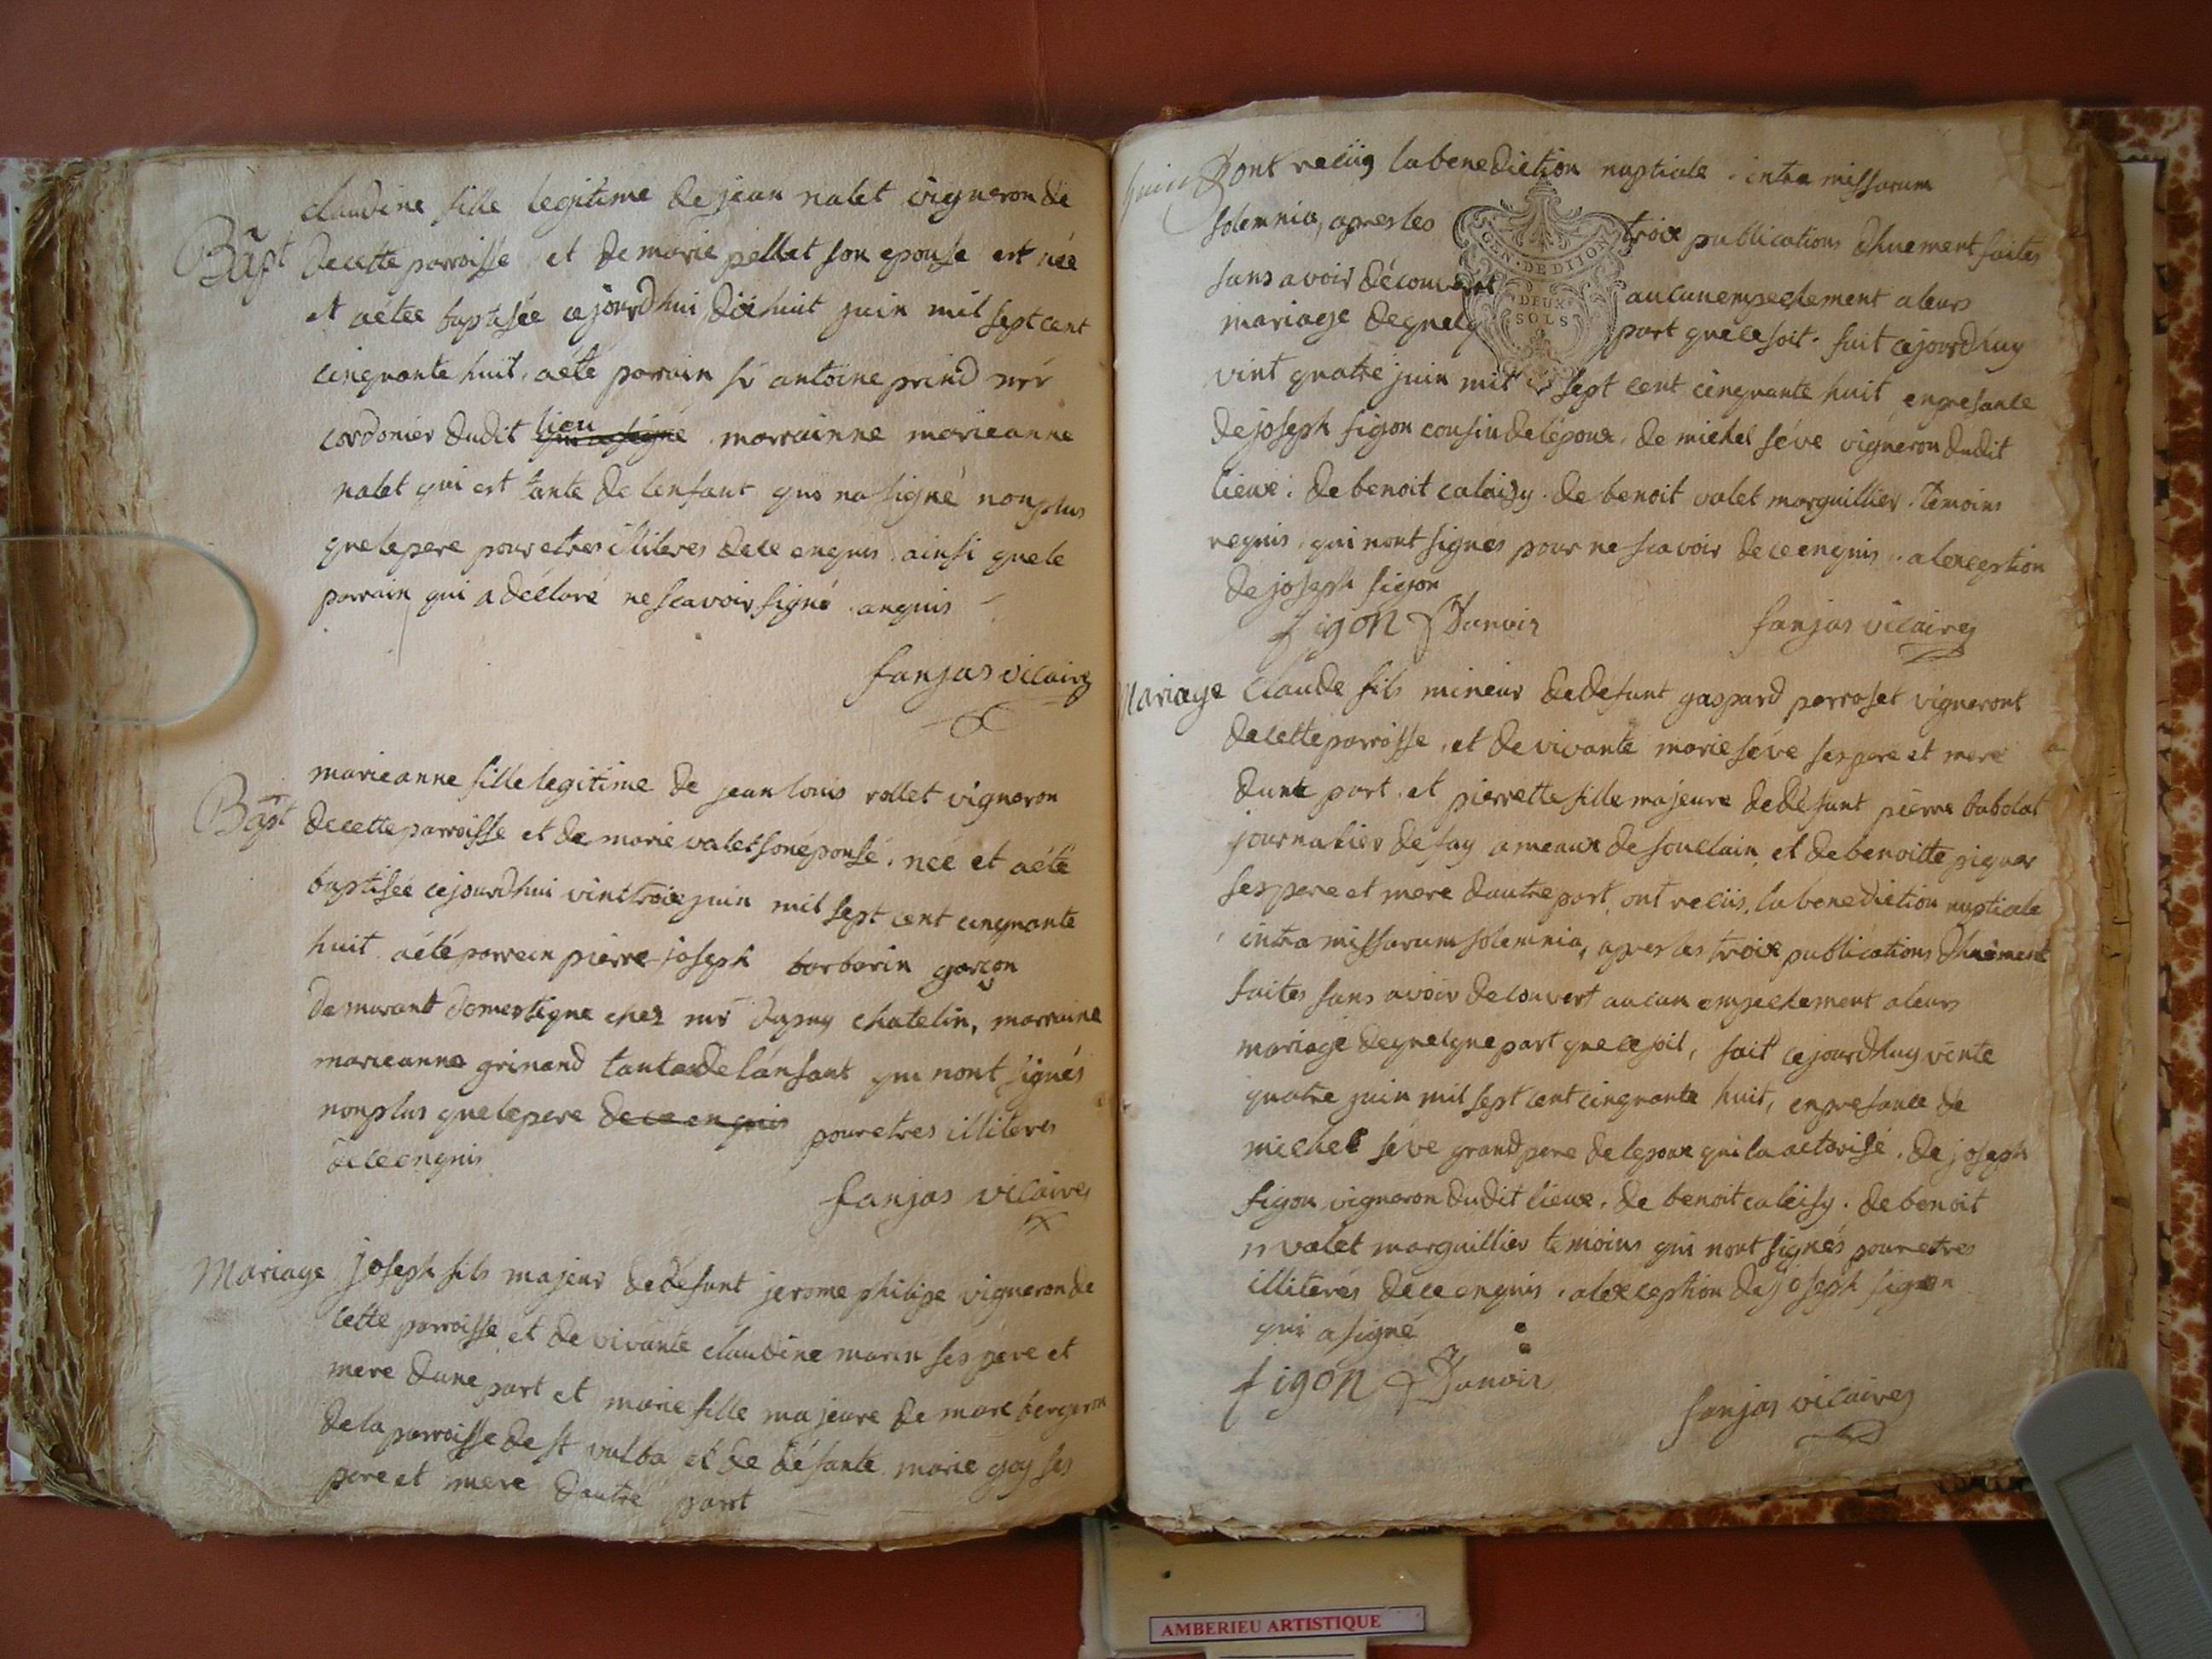 claudine fille legitime de jean nalet vigneron de
Bapt decette parroisse et de marie pellet son epouse est née
et aétee baptisée cejourdhui dixhuit juin mil sept cent
cinquante huit, aété parrain sr antoine prind mtr
cordonier dudit lieu qui a signé marrainne marieanne
nalet qui est tante de lenfant qui na signé nonplus
quelepere pour etres illiteres dece enquis ainsi quele
parrain qui a déclaré ne scavoir signé anquis
fanjas vicaire
marieanne fille legitime de jean louis rollet vigneron
Bapt decette parroisse et de marie valet sonéponse. neé et aété
baptisée cejourdhui vint troix juin mil sept cent cinquante
huit aété parrein pierre joseph barbarin garçon
demurant domestique chez mr dupuy chatelin, marraine
marieanne grinand tantedelánfant qui nont signés
nonplus quelepere dece enquis pour etres illiteres
dece enquis
fanjas vicaires
Mariage joseph fils majeur dedefunt jerome philipe vigneron de
cette parroisse et de vivante claudine marin ses pere et
mere dune part et marie fille majeure de marc bergeron
dela parroisse de st vulba et de défunte marie goy ses
pere et mere dautre part
juin ont reçüs labenediction nuptiale. intra missarum
solemnia, apres les troix publications dhuement faites
GEN. DE DIJON
DEUX SOLS
sans avoir découvert aucun empechement aleurs
mariage dequelq part quecesoit. fait cejourdhuy
vint quatre juin mil sept cent cinquante huit enpresance
dejoseph figon cousin delépoux, de michel séve vigneron dudit
lieux. de benoit calaizy. de benoit valet marguillier. temoins
requis, qui nont signés pour ne scavoir de ce enquis. alexception
dejoseph figon
figon fanjas vicaires
Mariage Claude fils mineur dedefunt gaspard parroset vigneront
decette parroisse, et devivante marie séve ses pere et mere
dune part. et pierrette fille majeure dedéfunt pierre babolat
journalier de fay ameaux de souclain et debenoitte piquar
ses pere et mere dautre part, ont reciis, labenediction nuptiale
intra missarum solemnia, apres les troix publications dhuement
faites sans avoir decouvert aucun empechement aleurs
mariage dequelque part quecesoit, fait cejourdhuy vinte
quatre juin mil sept cent cinquante huit, enpresance de
michel séve grand pere delepoux qui la actorisé. de joseph
figon vigneron dudit lieux. de benoit caleisy. de benoit
valet marguillier temoins qui nont signés pour etres
illiterés dece enquis. alexception de joseph figon
qui a signé
figon
fanjas vicaires
AMBERIEU ARTISTIQUE